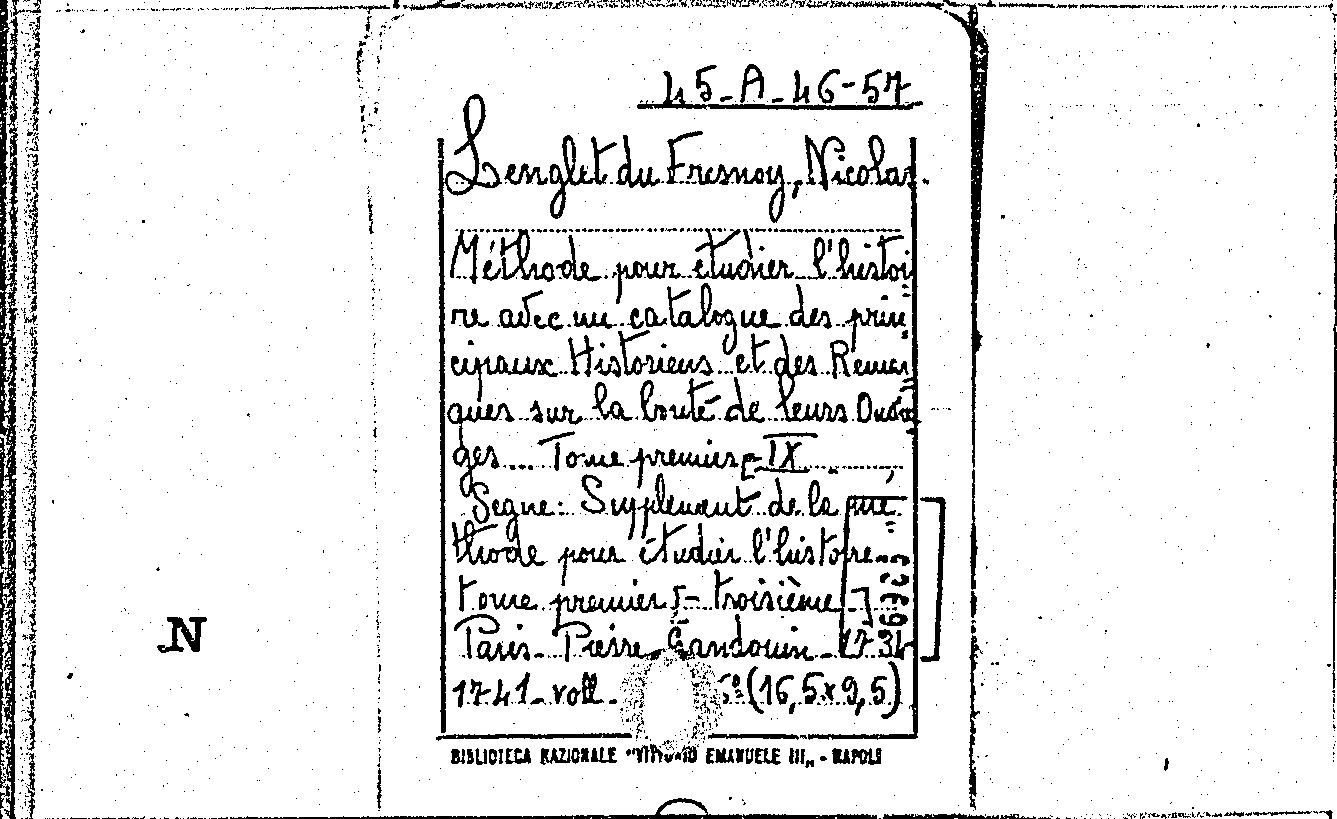 45-A-46-57
Lenglet du Fresnoy, Nicolas.
Méthode pour étudier l'histoi
re avec un catalogue des prin
cipaux Historiens et des Remar
ques sur la bonté de leurs Ouvra
ges... Tome premier [-IX
Segue: Supplement de la mé
thode pour étudier l'histoire-
tome premier [- troisième-]
Paris- Pierre Gandouin- 1734
1741- voll. (16,5x9,5)
N
BIBLIOTECA NAZIONALE "VITTORIO EMANUELE III„ - NAPOLI